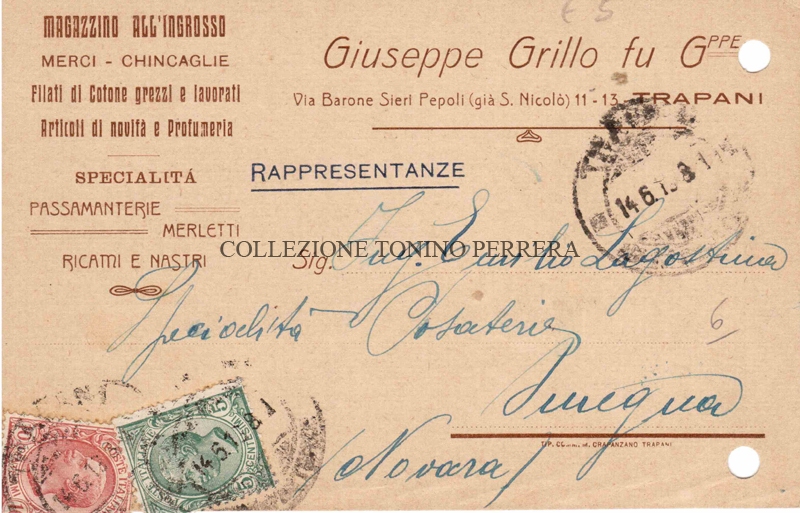 MAGAZZINO ALL'INGROSSO
MERCI - CHINCAGLIE
Filati di Cotone grezzi e lavorati
Articoli di novità e Profumeria
SPECIALITÁ
PASSAMANTERIE
MERLETTI
RICAMI E NASTRI
£ 5
Giuseppe Grillo fu Gppe
Via Barone Sieri Pepoli (già S. Nicolò) 11 - 13 - TRAPANI
RAPPRESENTANZE
14 6 1 8 1
COLLEZIONE TONINO PERRERA
Sig. Ing. Emilio Lagostina
Specialità Posaterie
6
Omegna
(Novara)
TIP. CRAPANZANO TRAPANI
POSTE ITALIANE
10
5
14 6 1 8 1